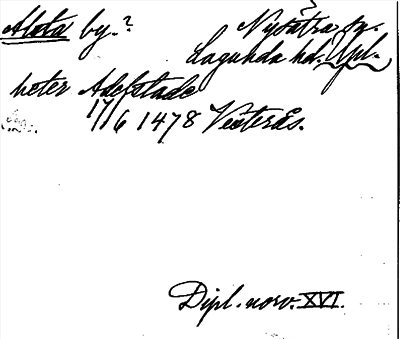 Alsta by.? Nysätra sn.
Lagunda hd. Upl.
heter Adefstade
17/6 1478 Västerås.
Dipl. norv. XVI.